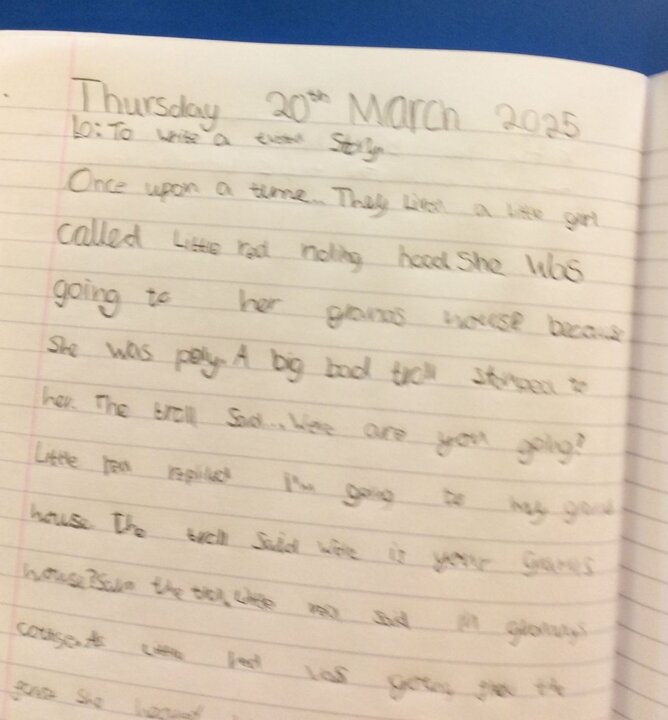 Thursday 20th March 2025
Lo: To write a Story
Once upon a time... They Lived a little girl
called Little red riding hood She Was
going to her grans house because
She was poly. A big bad troll stomped to
her. The troll Said... Were are you going?
Little red replied I'm going to my grans
house. The troll Said were is your Grans
house? Said the troll, Little red said in
Little Red the
She